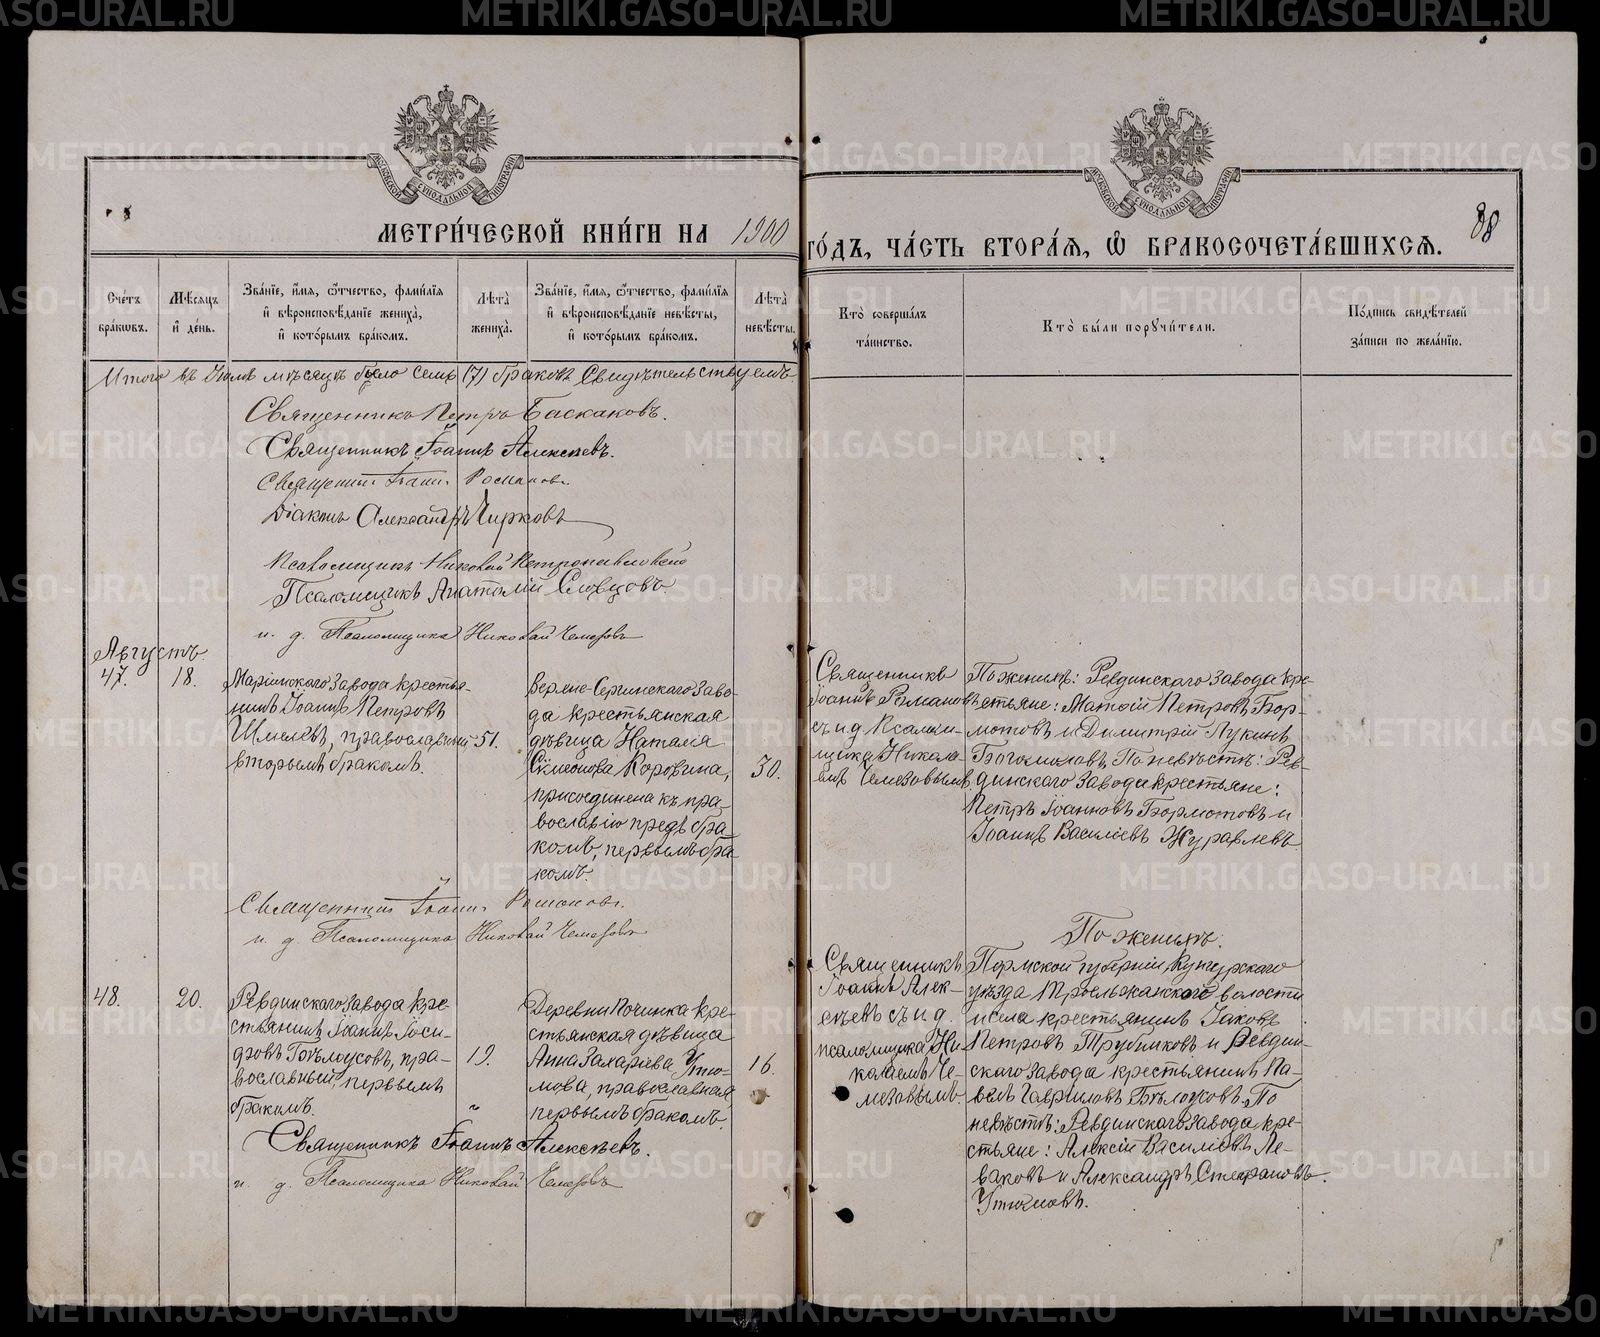 МЕТРИ́ЧЕСКОЙ КНИ́ГИ НА 1900
ГО́ДЪ, ЧА́СТЬ ВТОРА́Я, Ѡ БРАКОСОЧЕТА́ВШИХСЯ.
88
МОСКОВСКОЙ СУНОДАЛЬНОЙ ТИПОГРАФIИ
МОСКОВСКОЙ СУНОДАЛЬНОЙ ТИПОГРАФIИ
Сче́тъ бра́кѡвъ.
Мѣ́сяцъ и҆ де́нь.
Зва́нїе, и҆́мя, ѻ҆́тчество, фами́лїя
и҆ вѣроисповѣ́данїе жениха̀,
и҆ кото́рымъ бра́комъ.
Лѣ́та жениха̀.
Зва́нїе, и҆́мя, ѻ҆́тчество, фами́лїя
и҆ вѣроисповѣ́данїе невѣ́сты,
и҆ кото́рымъ бра́комъ.
Лѣ́та невѣ́сты.
Кто̀ соверша́лъ
та́инство.
Кто̀ бы́ли порꙋчи́тели.
По́дпись свидѣ́телей
за́писи по жела́нїю.
Итого въ Іюлѣ мѣсяцѣ было семь (7) браковъ Свидѣтельствуемъ
Священникъ Петръ Баскаковъ.
Священникъ Іоаннъ Алексѣевъ.
Священникъ Іоаннъ Романовъ.
Діаконъ Александръ Чирковъ
Псаломщикъ Николай Петропавловскій
Псаломщикъ Анатолій Словцовъ.
и. д. Псаломщика Николай Чемезовъ
Августъ.
47.
18.
Маріинскаго Завода крестья-
нинъ Іоаннъ Петровъ
Шмелевъ, православный
вторымъ бракомъ.
51.
Верхне-Сергинскаго Заво-
да крестьянская
дѣвица Наталія
Сѵмеонова Коровина,
присоединена къ пра-
вославію предъ бра-
комъ, первымъ бра-
комъ.
30.
Священникъ
Іоаннъ Романовъ
съ и д. Псалом-
щика Никола-
емъ Чемезовымъ
По женихѣ: Ревдинскаго Завода кре-
стьяне: Матѳій Петровъ Бор-
мотовъ и Димитрій Лукинъ
Богомоловъ. По невѣстѣ: Рев-
динскаго Завода крестьяне:
Петръ Іоанновъ Бормотовъ и
Іоаннъ Василіевъ Журавлевъ
Священникъ Іоаннъ Романовъ.
и. д. Псаломщика Николай Чемезовъ
48.
20.
Ревдинскаго Завода кре-
стьянинъ Іоаннъ Ісси-
доровъ Бѣлоусовъ, пра-
вославный, первымъ
бракомъ.
19.
Деревни Починка кре-
стьянская дѣвица
Анна Захаріева Утю-
мова, православная,
первымъ бракомъ.
16.
Священникъ
Іоаннъ Алек-
сѣевъ съ и д.
псаломщика Ни-
колаемъ Че-
мезовымъ.
По женихѣ:
Пермской губерніи, Кунгурскаго
уѣзда Троельжанской волости
и села крестьянинъ Іаковъ
Петровъ Трубниковъ и Ревдин-
скаго Завода крестьянинъ Па-
велъ Гавриловъ Бѣлоусовъ. По
невѣстѣ: Ревдинскаго Завода кре-
стьяне: Алексій Василіевъ Ле-
ваковъ и Александръ Стефановъ
Утюмовъ.
Священникъ Іоаннъ Алексѣевъ.
и. д. Псаломщика Николай Чемезовъ
METRIKI.GASO-URAL.RU